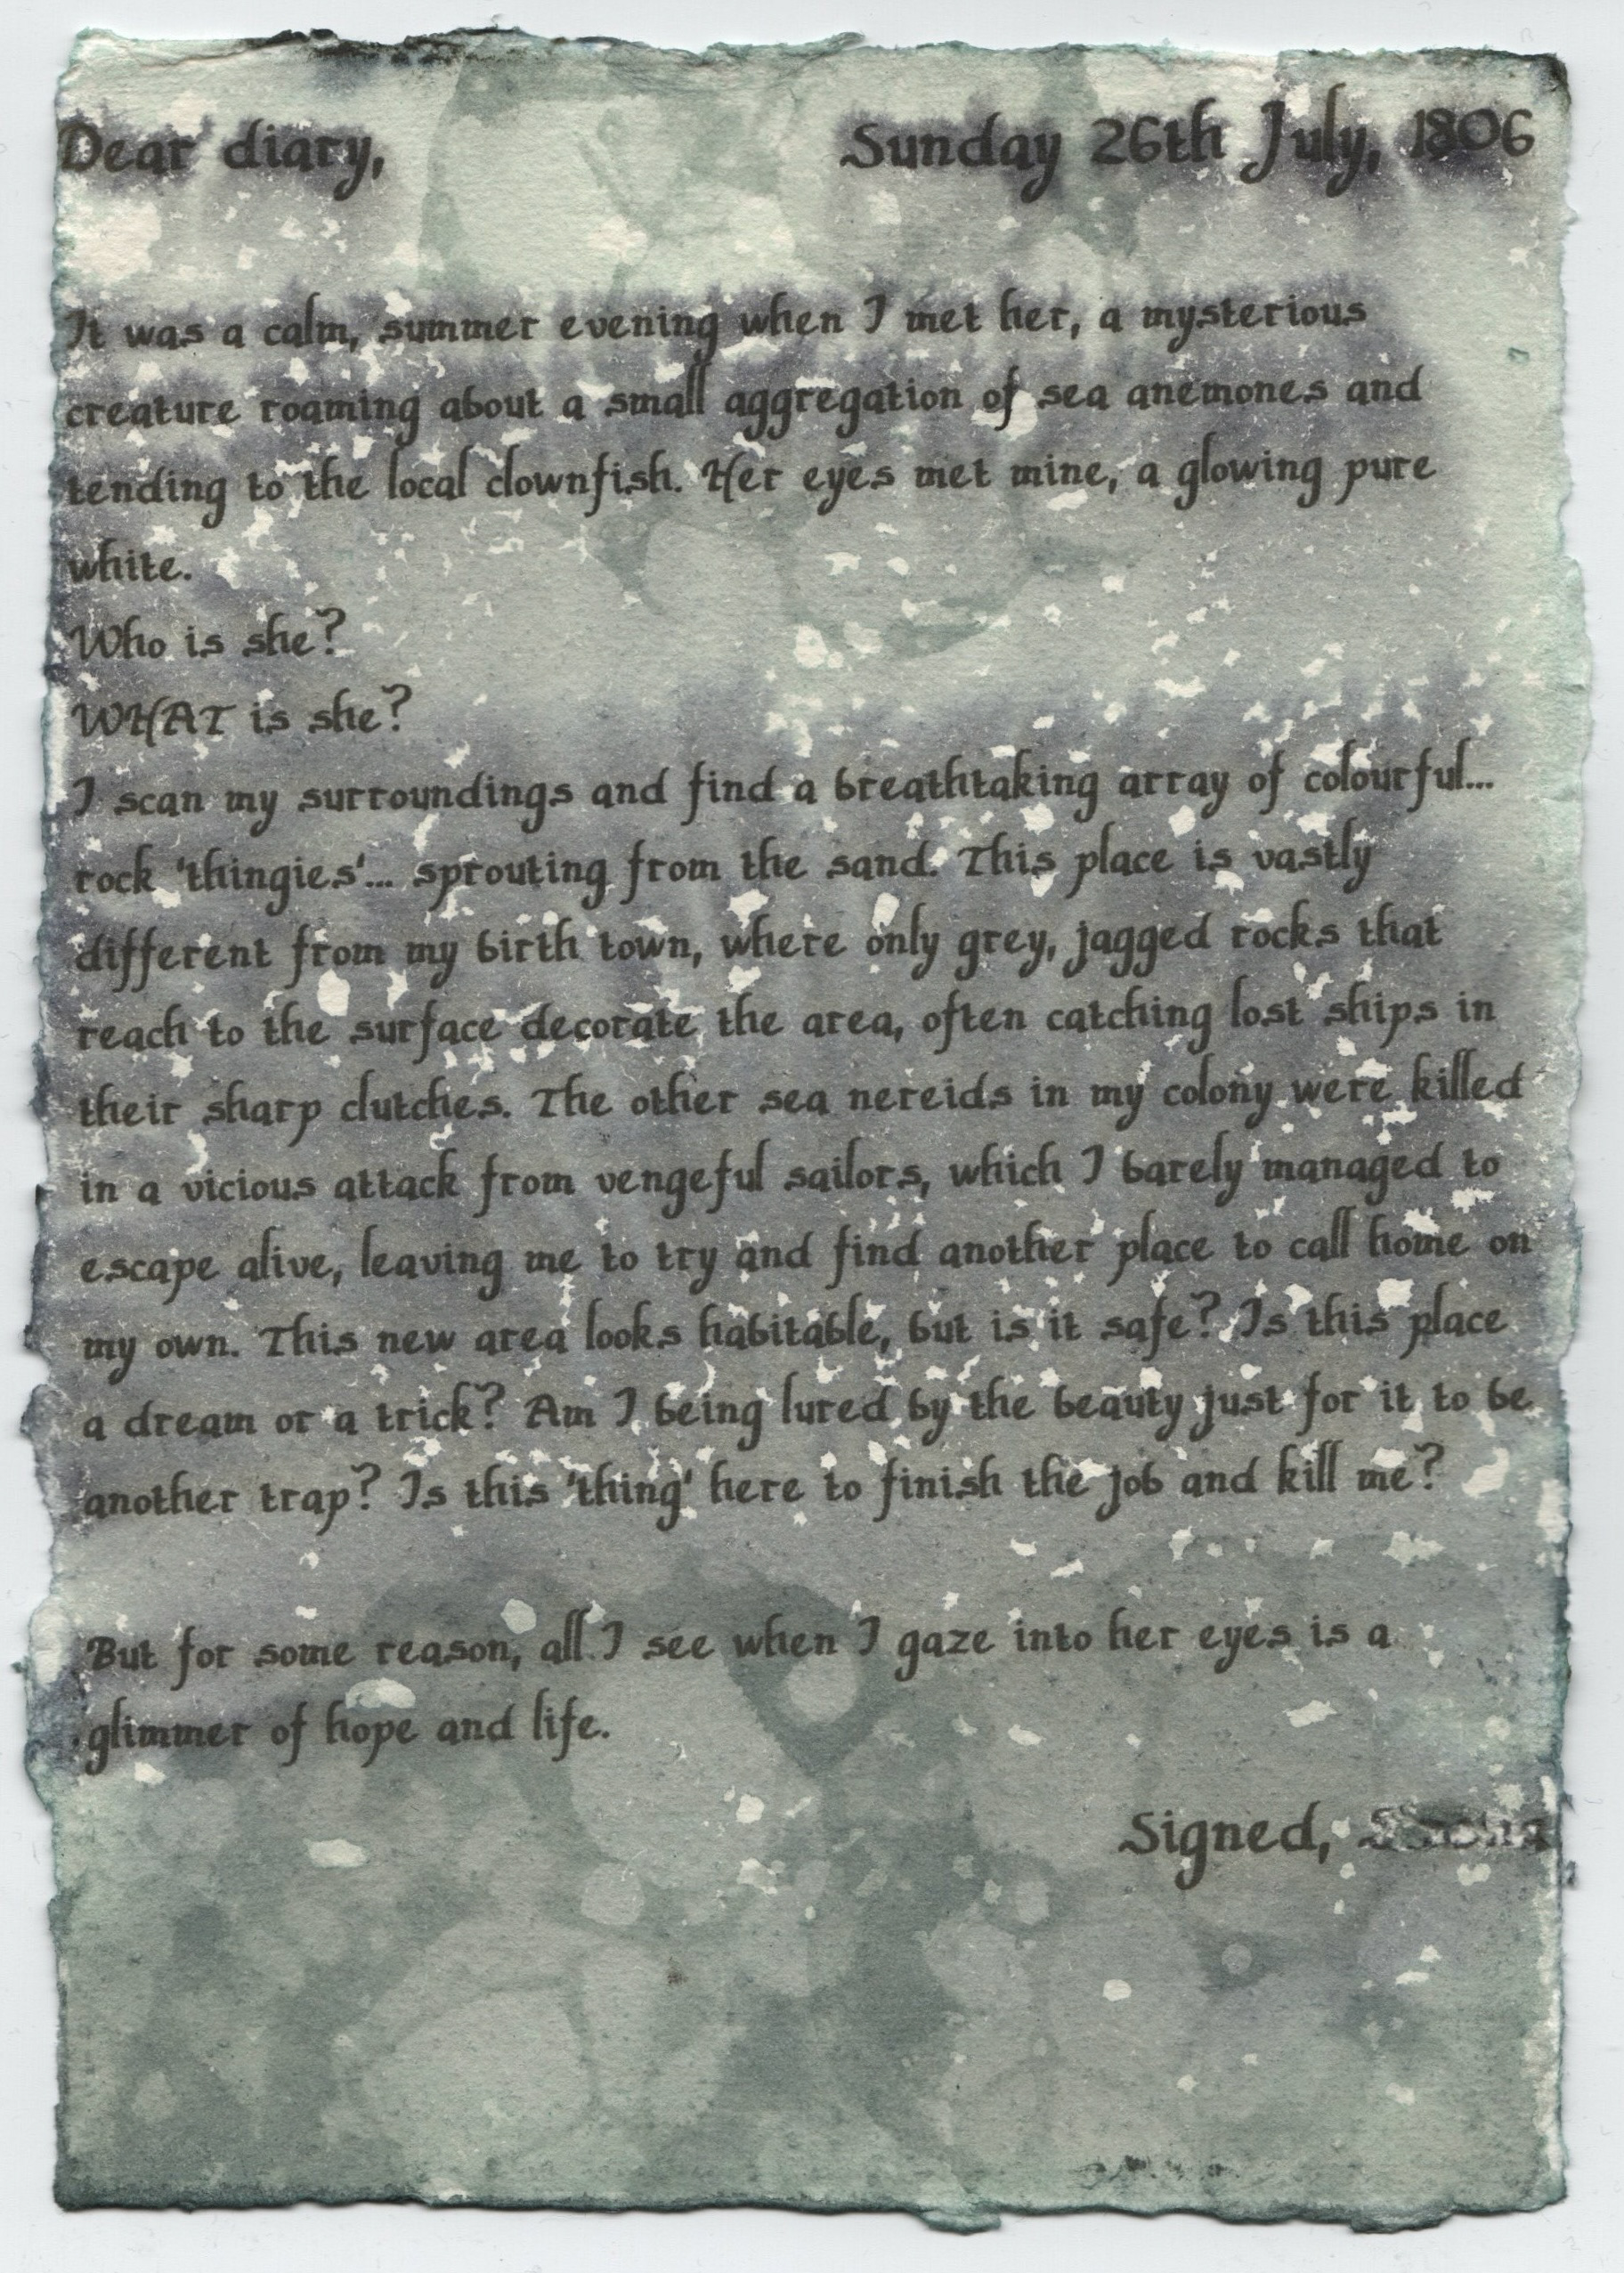 Dear diary, Sunday 26th July, 1806
It was a calm, summer evening when I met her, a mysterious
creature roaming about a small aggregation of sea anemones and
tending to the local clownfish. Her eyes met mine, a glowing pure
white.
Who is she?
WHAT is she?
I scan my surroundings and find a breathtaking array of colourful...
rock 'thingies'... sprouting from the sand. This place is vastly
different from my birth town, where only grey, jagged rocks that
reach to the surface decorate the area, often catching lost ships in
their sharp clutches. The other sea nereids in my colony were killed
in a vicious attack from vengeful sailors, which I barely managed to
escape alive, leaving me to try and find another place to call home on
my own. This new area looks habitable, but is it safe? Is this place
a dream or a trick? Am I being lured by the beauty just for it to be
another trap? Is this 'thing' here to finish the job and kill me?
But for some reason, all I see when I gaze into her eyes is a
glimmer of hope and life.
Signed,